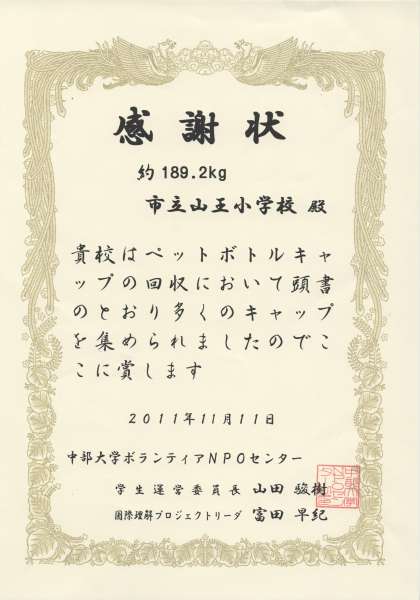 感謝状
約189.2kg
市立山王小学校 殿
貴校はペットボトルキャ
ップの回収において頭書
のとおり多くのキャップ
を集められましたのでこ
こに賞します
2011年11月11日
中部大学ボランティアNPOセンター
学生運営委員長 山田 駿樹
国際理解プロジェクトリーダ 富田 早紀